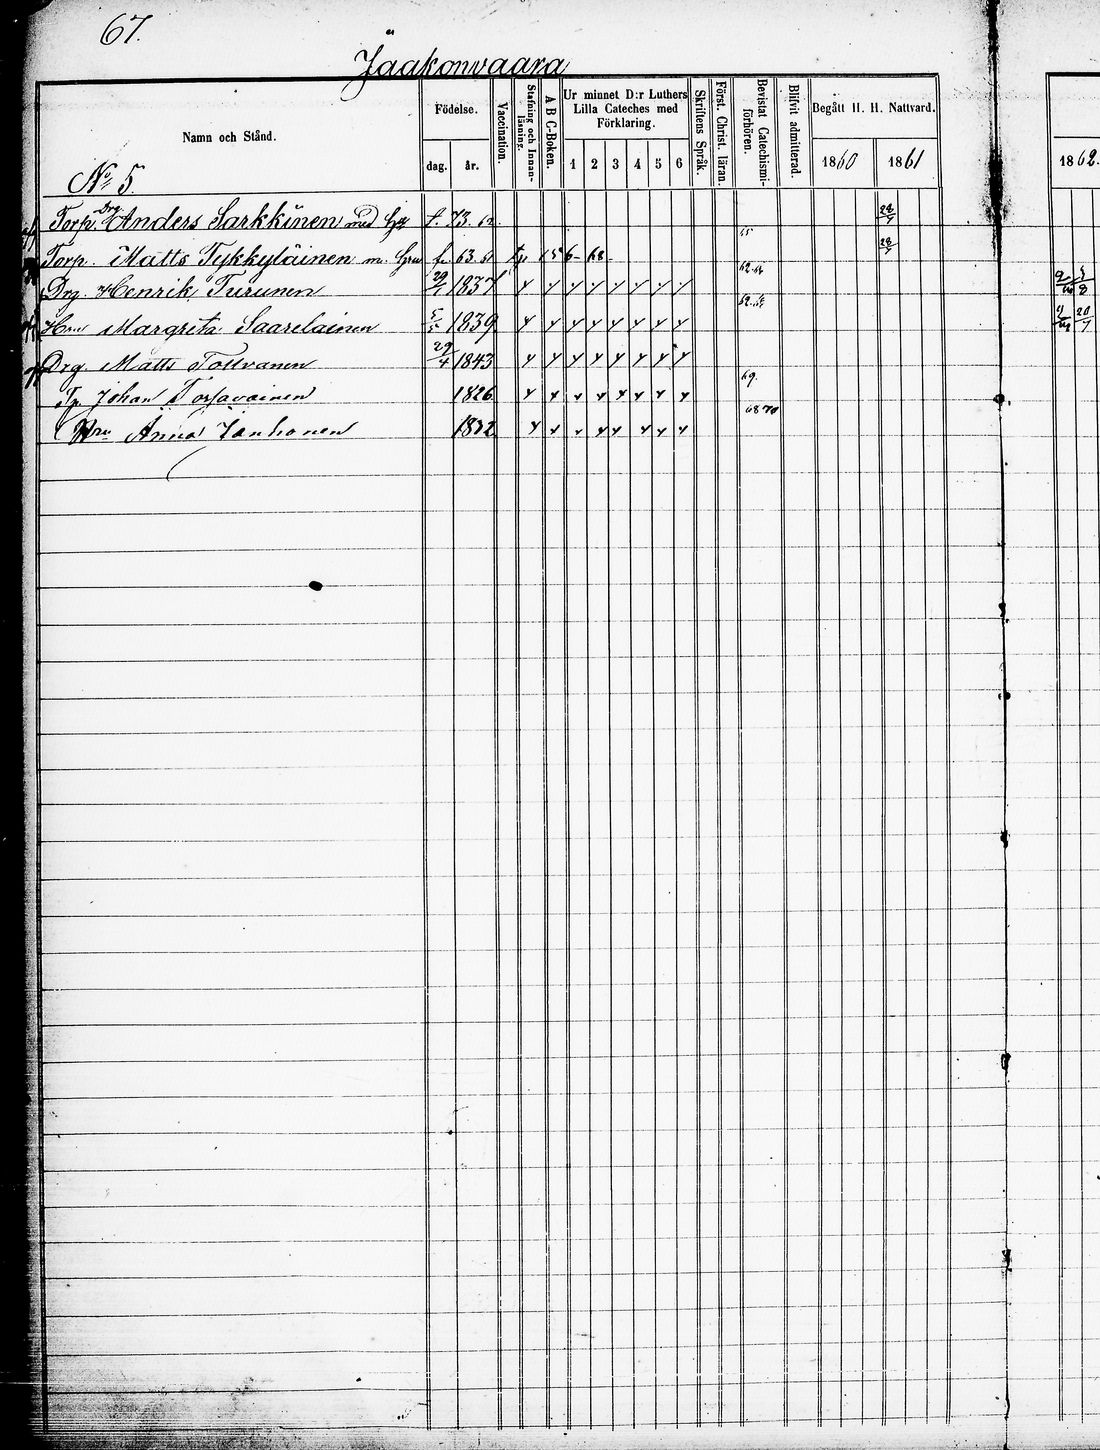 67.
Jaakonvaara
Namn och Stånd.
Födelse.
dag. år.
Vaccination.
Stafning och Innanläsning.
A B C-Boken.
Ur minnet D:r Luthers Lilla Cateches med Förklaring.
1 2 3 4 5 6
Skriftens Språk.
Först. Christ. läran.
Bevistat Catechismiförhören.
Blifvit admitterad.
Begått H. H. Nattvard.
1860 1861
1862.
No 5.
Torp. Drg. Anders Sarkkinen med 73. 62 28/7
Torp. Matts Tykkyläinen m. Hru 63. 68 65 28/7
Drg. Henrik Turunen 29/7 1837 62.64
Hru Margreta Saarelainen 5/5 1839 62.64 20/7
Drg. Matts Tolvanen 29/4 1843
Tp. Johan 1826 69.
Hru Anna Janhonen 1832 68 70